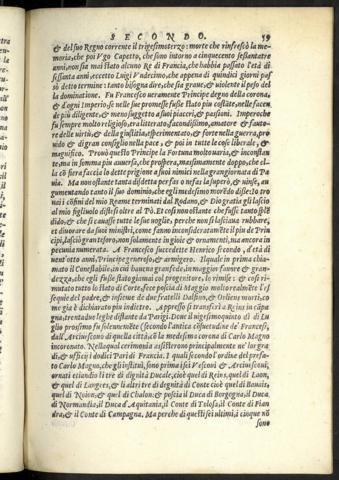 SECONDO. 59
& del suo Regno corrente il trigesimoterzo: morte che rinfrescò la me-
moria, che poi Vgo Capetto, che sono intorno a cinquecento sessantatre
anni, non sia mai stato alcuno Re di Francia, che habbia passato l'età di
sessanta anni, eccetto Luigi Vndecimo, che appena di quindici giorni pas
sò detto termine: tanto bisogna dire, che sia graue, & violente il peso del
la dominatione. Fu Francesco veramente Principe degno della corona,
& d'ogni Imperio, se nelle sue promesse fusse stato piu costāte, nelle facen
de piu diligente, & meno suggetto a suoi piaceri, & passioni. Imperoche
fu sempre molto religioso, tra literato, facondissimo, amatore & fauto-
re delle virtù, & della giustitia, esperimentato, & forte nella guerra, pro
uido & di gran consiglio nella pace, & poi in tutte le cose liberale, &
magnifico. Prouò questo Principe la Fortuna molto varia, & inconstan
te, ma in somma piu auuersa, che prospera, massimamente doppo, che el-
la cō fiera faccia lo dette prigione a suoi nimici nella gran giornata di Pa
uia. Ma non ostante tanta disdetta per fas o nefas la superò, & vinse, au
mentando tanto il suo dominio, che egli medesimo mordè discosto tro
nai i cōfini del mio Reame terminati dal Rodano, & Dio gratia gli lascio
al mio figliuolo distesi oltre al Pò. Et cosi non ostante che fusse tanto spē
dido, & che si cauasse tutte le sue voglie, perche non si lasciaua rubbare,
et diuorare da suoi ministri, come fanno inconsideratamēte il piu de Prin
cipi, lasciò gran tesoro, non solamente in gioie & ornamenti, ma ancora in
pecunia numerata. A Francesco succedette Henrico secondo, d'età di
uent'otto anni, Principe generoso, & armigero. Il quale in prima chia-
mato il Conestabile, an cui haueua grande fede, in maggior fauore & gran-
dezza, che egli fusse stato giamai col progenitore, lo rimise: & cosi ri-
mutato tutto lo stato di Corte, fece poscia di Maggio molto realmēte l'es
sequie del padre, & insieme de due fratelli Dalfino, & Orliens morti, co
me già è dichiarato piu indietro. Appresso si transferì a Reins in cāpa
gna, trentadue leghe distante da Parigi. Doue il uigesimoquinto dì di Lu
glio prossimo fu solennemēte (secondo l'antica cōsuetudine de' Francesi,
dall'Arciuescouo di quella città, cō la medesima corona di Carlo Magno
incoronato. Nella qual cerimonia assisterono principalmente ne lor gra-
di, & officij i dodici Pari di Francia. I quali secondo l'ordine del prefa-
to Carlo Magno, che gli instituì, sono prima sei Vescoui & Arciuescoui,
ornati etiandio li tre di dignità Ducale, cioè quel di Reins, quel di Laon,
& quel di Langres, & li altri tre di degnità di Conte cioè quel di Beuais,
quel di Noion, & quel di Chalon: & poscia il Duca di Borgogna, il Duca
di Normandia, il Duca d'Aquitania, il Conte di Tolosa, il Conte di Fian
dra, & il Conte di Campagna. Ma perche di questi sei ultimi, i cinque nō
sono